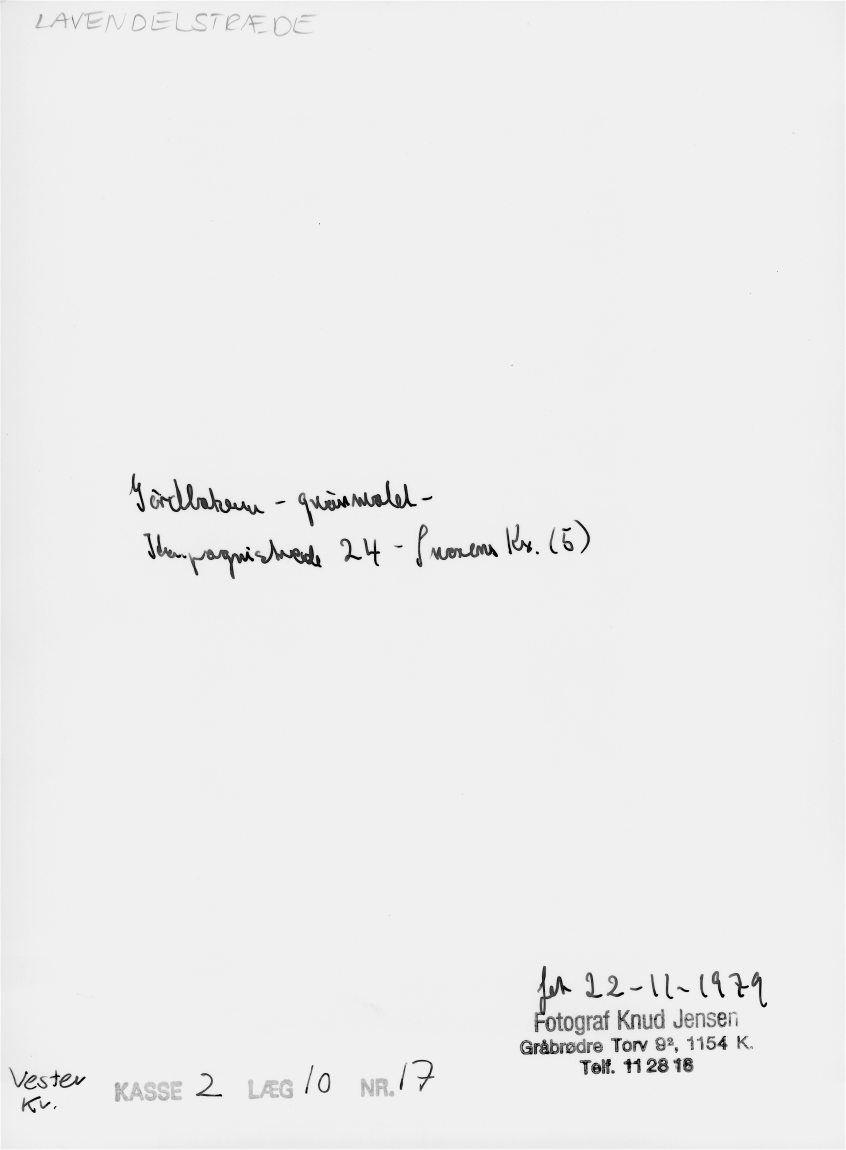 LAVENDELSTRÆDE
- grønmalet -
Kompagnistræde 24 - Snarens Kv. (5)
fot 22-11-1979
Fotograf Knud Jensen
Gråbrødre Torv 9², 1154 K.
Telf. 11 28 16
Vester
Kv.
KASSE 2 LÆG 10 NR. 17